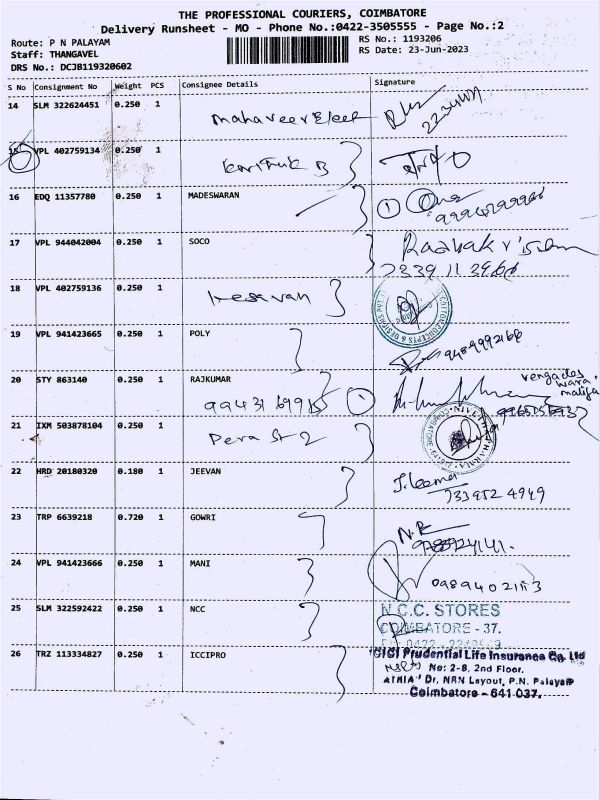 THE PROFESSIONAL COURIERS, COIMBATORE
Delivery Runsheet - MO - Phone No.:0422-3505555 - Page No.:2
Route: P N PALAYAM
Staff: THANGAVEL
DRS No.: DCJB119320602
RS No.: 1193206
RS Date: 23-Jun-2023
S No Consignment No Weight PCS Consignee Details Signature
14 SLM 322624451 0.250 1
15 VPL 402759134 0.250 1 Karthik B
16 EDQ 11357780 0.250 1 MADESWARAN
17 VPL 944042004 0.250 1 SOCO Radhakrishnan
18 VPL 402759136 0.250 1 Kesavan
19 VPL 941423665 0.250 1 POLY
20 STY 863140 0.250 1 RAJKUMAR
21 IXM 503878104 0.250 1
22 HRD 20180320 0.180 1 JEEVAN J. Leema
733952 4949
23 TRP 6639218 0.720 1 GOWRI
24 VPL 941423666 0.250 1 MANI
25 SLM 322592422 0.250 1 NCC N.C.C. STORES
COIMBATORE - 37.
26 TRZ 113334827 0.250 1 ICCIPRO Prudential Life Insurance Co. Ltd
No: 2-B, 2nd Floor,
Dr, NRN Layout, P.N. Palayam
Coimbatore - 641 037.